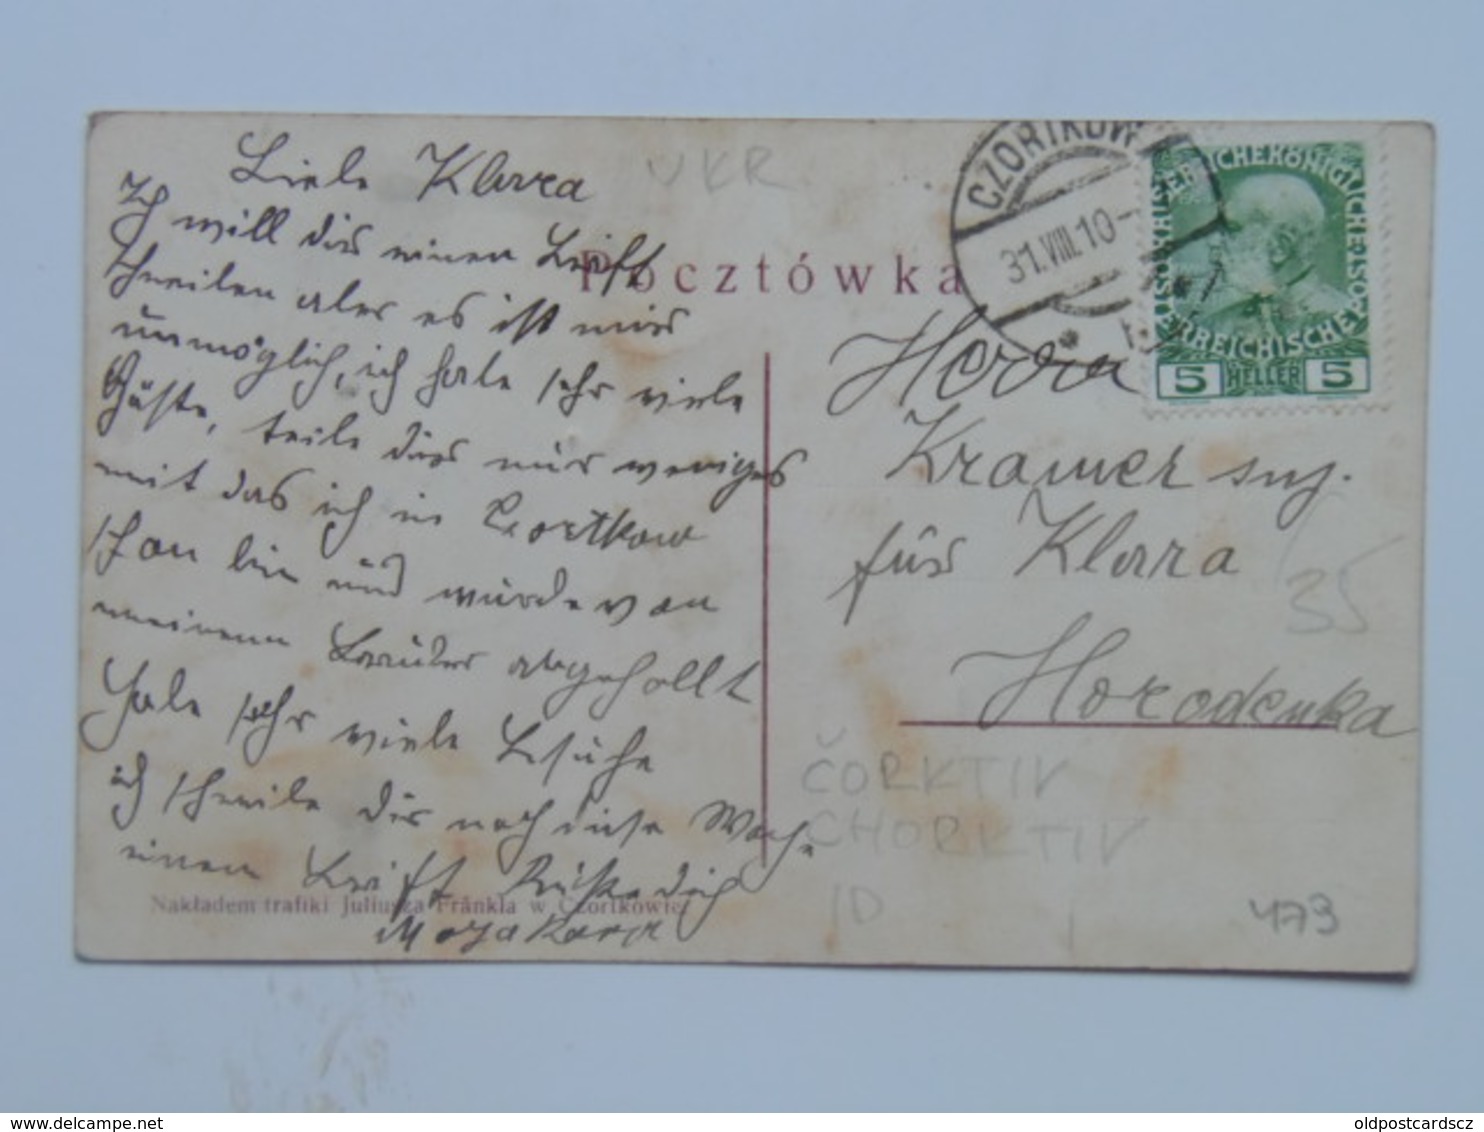 Liebe Klara
Ich will dir einen Brief
schreiben aber es ist mir
unmöglich, ich habe sehr viele
Gäste, teile dir nur weniges
mit das ich in Czortkow
schon bin und wurde von
meinem Bruder abgehollt
habe sehr viele Besuche
ich schreibe dir noch diese Woche
einen Brief Küsse dich
UKR.
Pocztówka
CZORTKÓW
31.VIII.10
KAISERLICHEKÖNIGLICHEÖSTERREICHISCHEPOST
5 HELLER 5
Herrn
Kramer
für Klara
Horodenka
35
ČORKTIV
CHORKTIV
ID
473
Nakładem trafiki Juliusza Fränkla w Czortkowie
oldpostcards.cz
oldpostcardscz